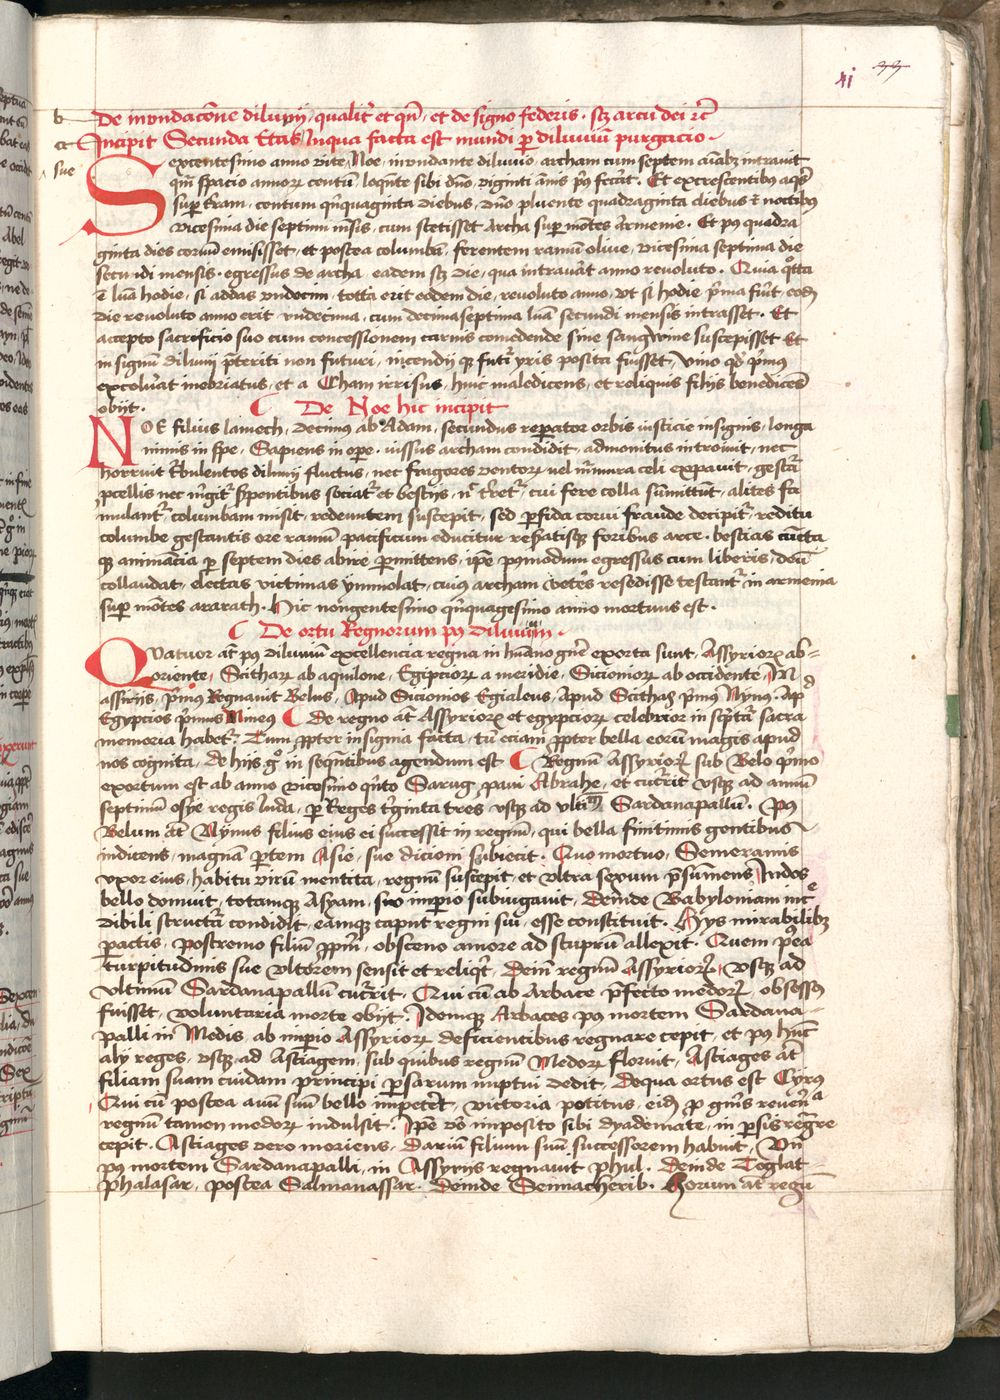 xi
b De inondacōne diluvij, qualit᷑ et qn̄, et de signo federis, sꝫ arcu dei ⁊c̄
a Incipit Secunda Etas, Inqua facta est mundi ꝑ diluviū purgacio.
sue
Sexcentesimo anno vite Noe, inondante diluvio, archam cum septem aīabꝫ intravit
qm̄ spacio annoꝝ centū, loqn̄te sibi dn̄o, viginti ānis pꝰ fecāt. Et excrescentibus aqꝭ
suꝑ t̄ram, centum qn̄quaginta diebus, dn̄o pluente quadraginta diebus ⁊ noctibꝰ
vicesima die septimi m̄sis, cum stetisset Archa suꝑ mōtes Armenie. Et pꝰ quadra
ginta dies corvū emisisset, et postea columbā, ferentem ramū olive, vicesima septima die
secūdi mensis, egressus de archa, eadem sꝫ die, qua intravāt anno revoluto. Quia qͦtta
ē luā hodie, si addas undecim, totta erit eodem die, revoluto anno, vt si hodie p̄ma fūit, eodē
die revoluto anno erit undecima, cum decimaseptima luā secundi mensis intrasset. Et
accepto sacrificio suo cum concessionem carnis comedende sine sangwine suscepisset Et
in signum diluvij p̄teriti non futuri, incendij qꝫ futi᷑ yris posita fuisset, vino qd̄ p̄mus
excolūat inebriatus, et a Cham irrisus, huic maledicens, et reliquis filijs benedicēs
obijt. De Noe hic incipit
NOE filius lamech, decimus ab Adam, secundus reꝑator orbis iusticie insignis, longa
nimis in spe, Sapiens in oꝑe, iussus archam condidit, admonitus introivit, nec
horruit t᷑bulentos diluvij fluctus, nec fragores ventoꝝ vel m̄mura celi expavit, gesta᷑
ꝓcellis nec m̄git᷑ sꝑentibus sociat᷑ et bestijs, n̄ t᷑ret᷑, cui fere colla sūmittūt, alites fa
mulant᷑, columbam misit, redeuntem suscepit, sed ꝑfida corvi fraude decipit᷑, reditu
columbe gestantis ore ramū pacificum educitur reseratisqꝫ foribus arce, bestias cūcta
qꝫ animācia ꝑ septem dies abire ꝑmittens, ip̄e pꝰmodum egressus cum liberis, deū
collaudat, electas victimas ymmolat, cuiꝰ archam vet᷑es resedisse testant᷑ in armenia
suꝑ mōtes ararath. Hic nongentesimo qn̄quagesimo anno mortuus est.
De ortu Regnorum pꝰ diluvium.
Quatuor at̄ pꝰ diluviū excellencia regna in hūano gn̄e exorta sunt, Assyrioꝝ ab
oriente, Scithaꝝ ab aquilone, Egipcioꝝ a meridie, Sicionioꝝ ab occidente, IN
assirijs, p̄mus Regnavit Belus, Apud Sicionios Egialeus, Apud Scithas p̄mꝰ Nynus, Apd
Egypcios p̄mus Mineus De regno at̄ Assyrioꝝ et egypcioꝝ celebrior in sc̄pta᷑ sacra
memoria habet᷑. Tum ꝓpter insignia facta, tū eciam ꝓpter bella eorū magis apud
nos cognita, de hijs gͦ in seqn̄tibus agendum est Regnū Assyrioꝝ sub Belo p̄mo
exortum est ab anno vicesimo qn̄to Sarug, ꝓavi Abrahe, et cuc᷑rit vsqꝫ ad annū
septimū osye regis Iuda, ꝑ Reges t᷑ginta tres vsqꝫ ad vltimū Sardanapallū. Pꝰ
Belum at̄ Nynus filius eius ei successit in regnū, qui bella finitimis gentibus
indicens, magnā ꝑtem Asie, sue dicioni subiecit. Quo mortuo, Semeramis
vxor eius, habitu virū mentita, regnū suscepit, et vltra sexum p̄sumens, Indos
bello domuit, totamqꝫ Asyam, suo imꝑio subiugavit, Deinde Babyloniam inc͏ͤ
dibili structa᷑ condidit, eamqꝫ caput regni sui, esse constituit. Hijs mirabilibꝫ
ꝑactis, postremo filiū ꝓp̄iū, obsceno amore ad stuprū allexit. Quem pꝰea
turpitudinis sue vltorem sensit et reliqͥt, Dein̄ regnū Assyrioꝝ, vsqꝫ ad
vltimū Sardanapallū cuc᷑rit, Qui cū ab Arbace p̄fecto medoꝝ obsessꝰ
fuisset, voluntaria morte obijt. Idemqꝫ Arbaces pꝰ mortem Sardana
palli in Medis, ab imꝑio Assyrioꝝ deficientibus regnare cepit, et pꝰ hūc
alij reges, vsqꝫ ad Astiagem, sub quibus regnū Medoꝝ floruit, Astiages at̄
filiam suam cuidam principi ꝑsarum nuptui dedit, Dequa ortus est Cyrꝰ
Qui cū postea avū suū bello impetēt, victoria potitus, eidē ꝓ gn̄is reveren̄a
regnū tamen medoꝝ indulsit. Ip̄e v̄o imposito sibi dyademate, in ꝑsis regn̄re
cepit. Astiages vero moriens, Dariū filium suū successorem habuit, Vn̄
pꝰ mortem Sardanapalli, in Assyrijs regnavit Phul. Deinde Teglat
phalasar, postea Salmanassar. Deinde Sennacherib. Horum at̄ regū